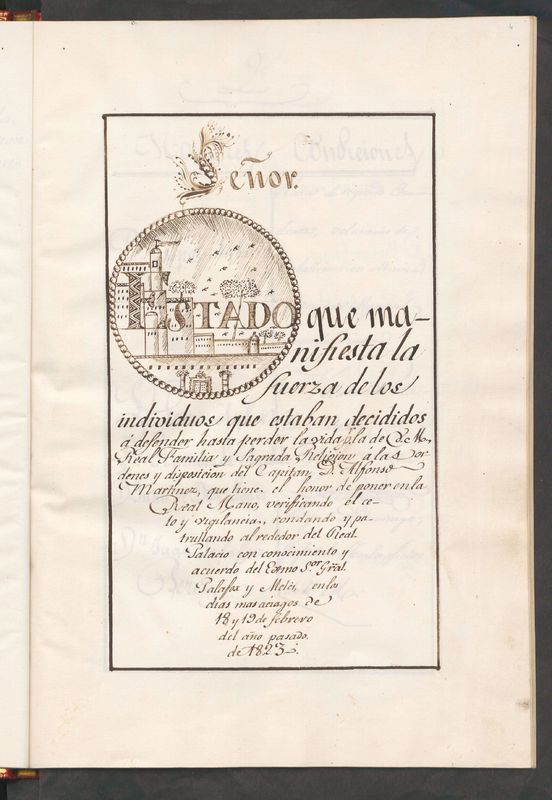 Señor.
ESTADO que ma-
nifiesta la
fuerza de los
individuos que estaban decididos
á defender hasta perder la vida la de V. M.
Real Familia y Sagrada Religion á las or
denes y disposicion del Capitan D. Alfonso
Martinez, que tiene el honor de poner en la
Real Mano, verificando el ce-
to y vigilancia, rondando y pa-
trullando al rededor del Real
Palacio con conocimiento y
acuerdo del Exmo Sor. Gral
Palafox y Melci, en los
dias mas aciagos de
18 y 19 de febrero
del año pasado
de 1823.